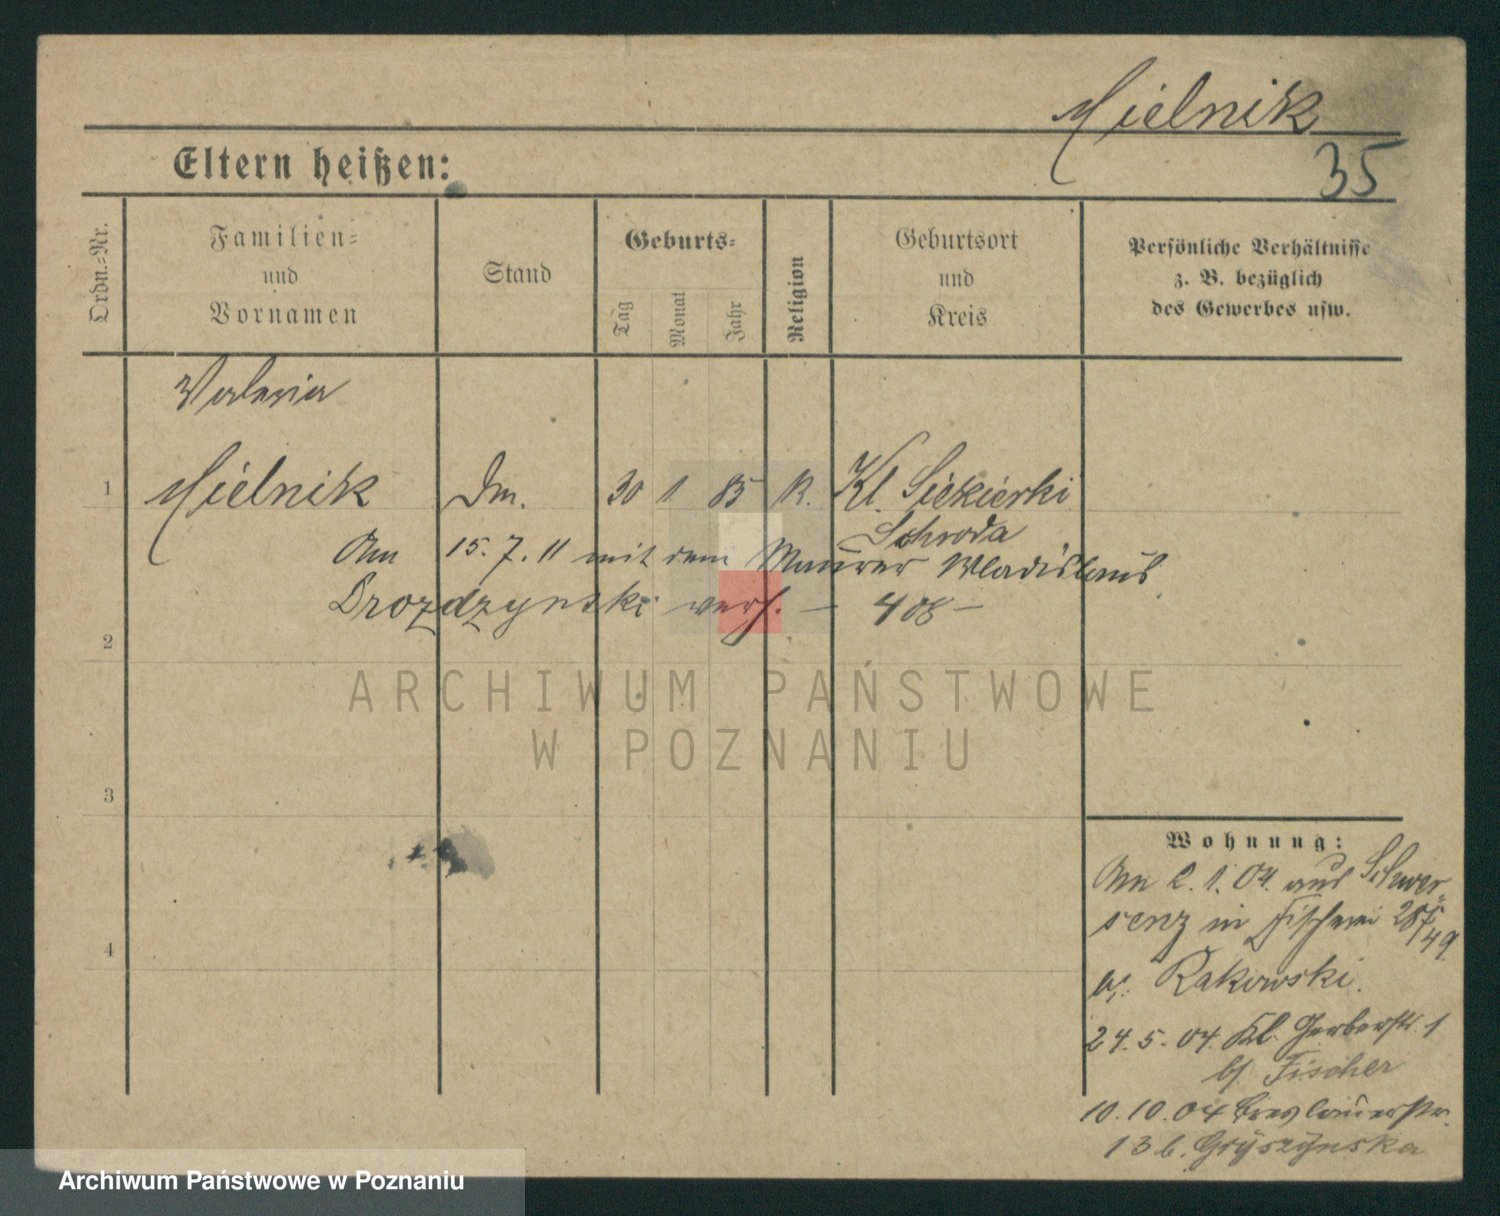 Mielnik
35
Eltern heißen:
Ordn.-Nr.
Familien-
und
Vornamen
Stand
Geburts-
Tag
Monat
Jahr
Religion
Geburtsort
und
Kreis
Persönliche Verhältnisse
z. B. bezüglich
des Gewerbes usw.
Valeria
1 Mielnik Dm. 30 1 85 K. Kl. Siekierki
Schroda
Am 15. 7. 11 mit dem Maurer Wladislaus
Drozdzynski verh. – 408 –
2
3
4
ARCHIWUM PAŃSTWOWE
W POZNANIU
Wohnung:
Am 2. 1. 04. aus Schwer-
senz in Fischerei
49
Rakowski.
24. 5. 04. Kl. Gerberstr. 1
b/ Fischer
10. 10. 04 Breslauerstr.
13 b. Gryszynska
Archiwum Państwowe w Poznaniu